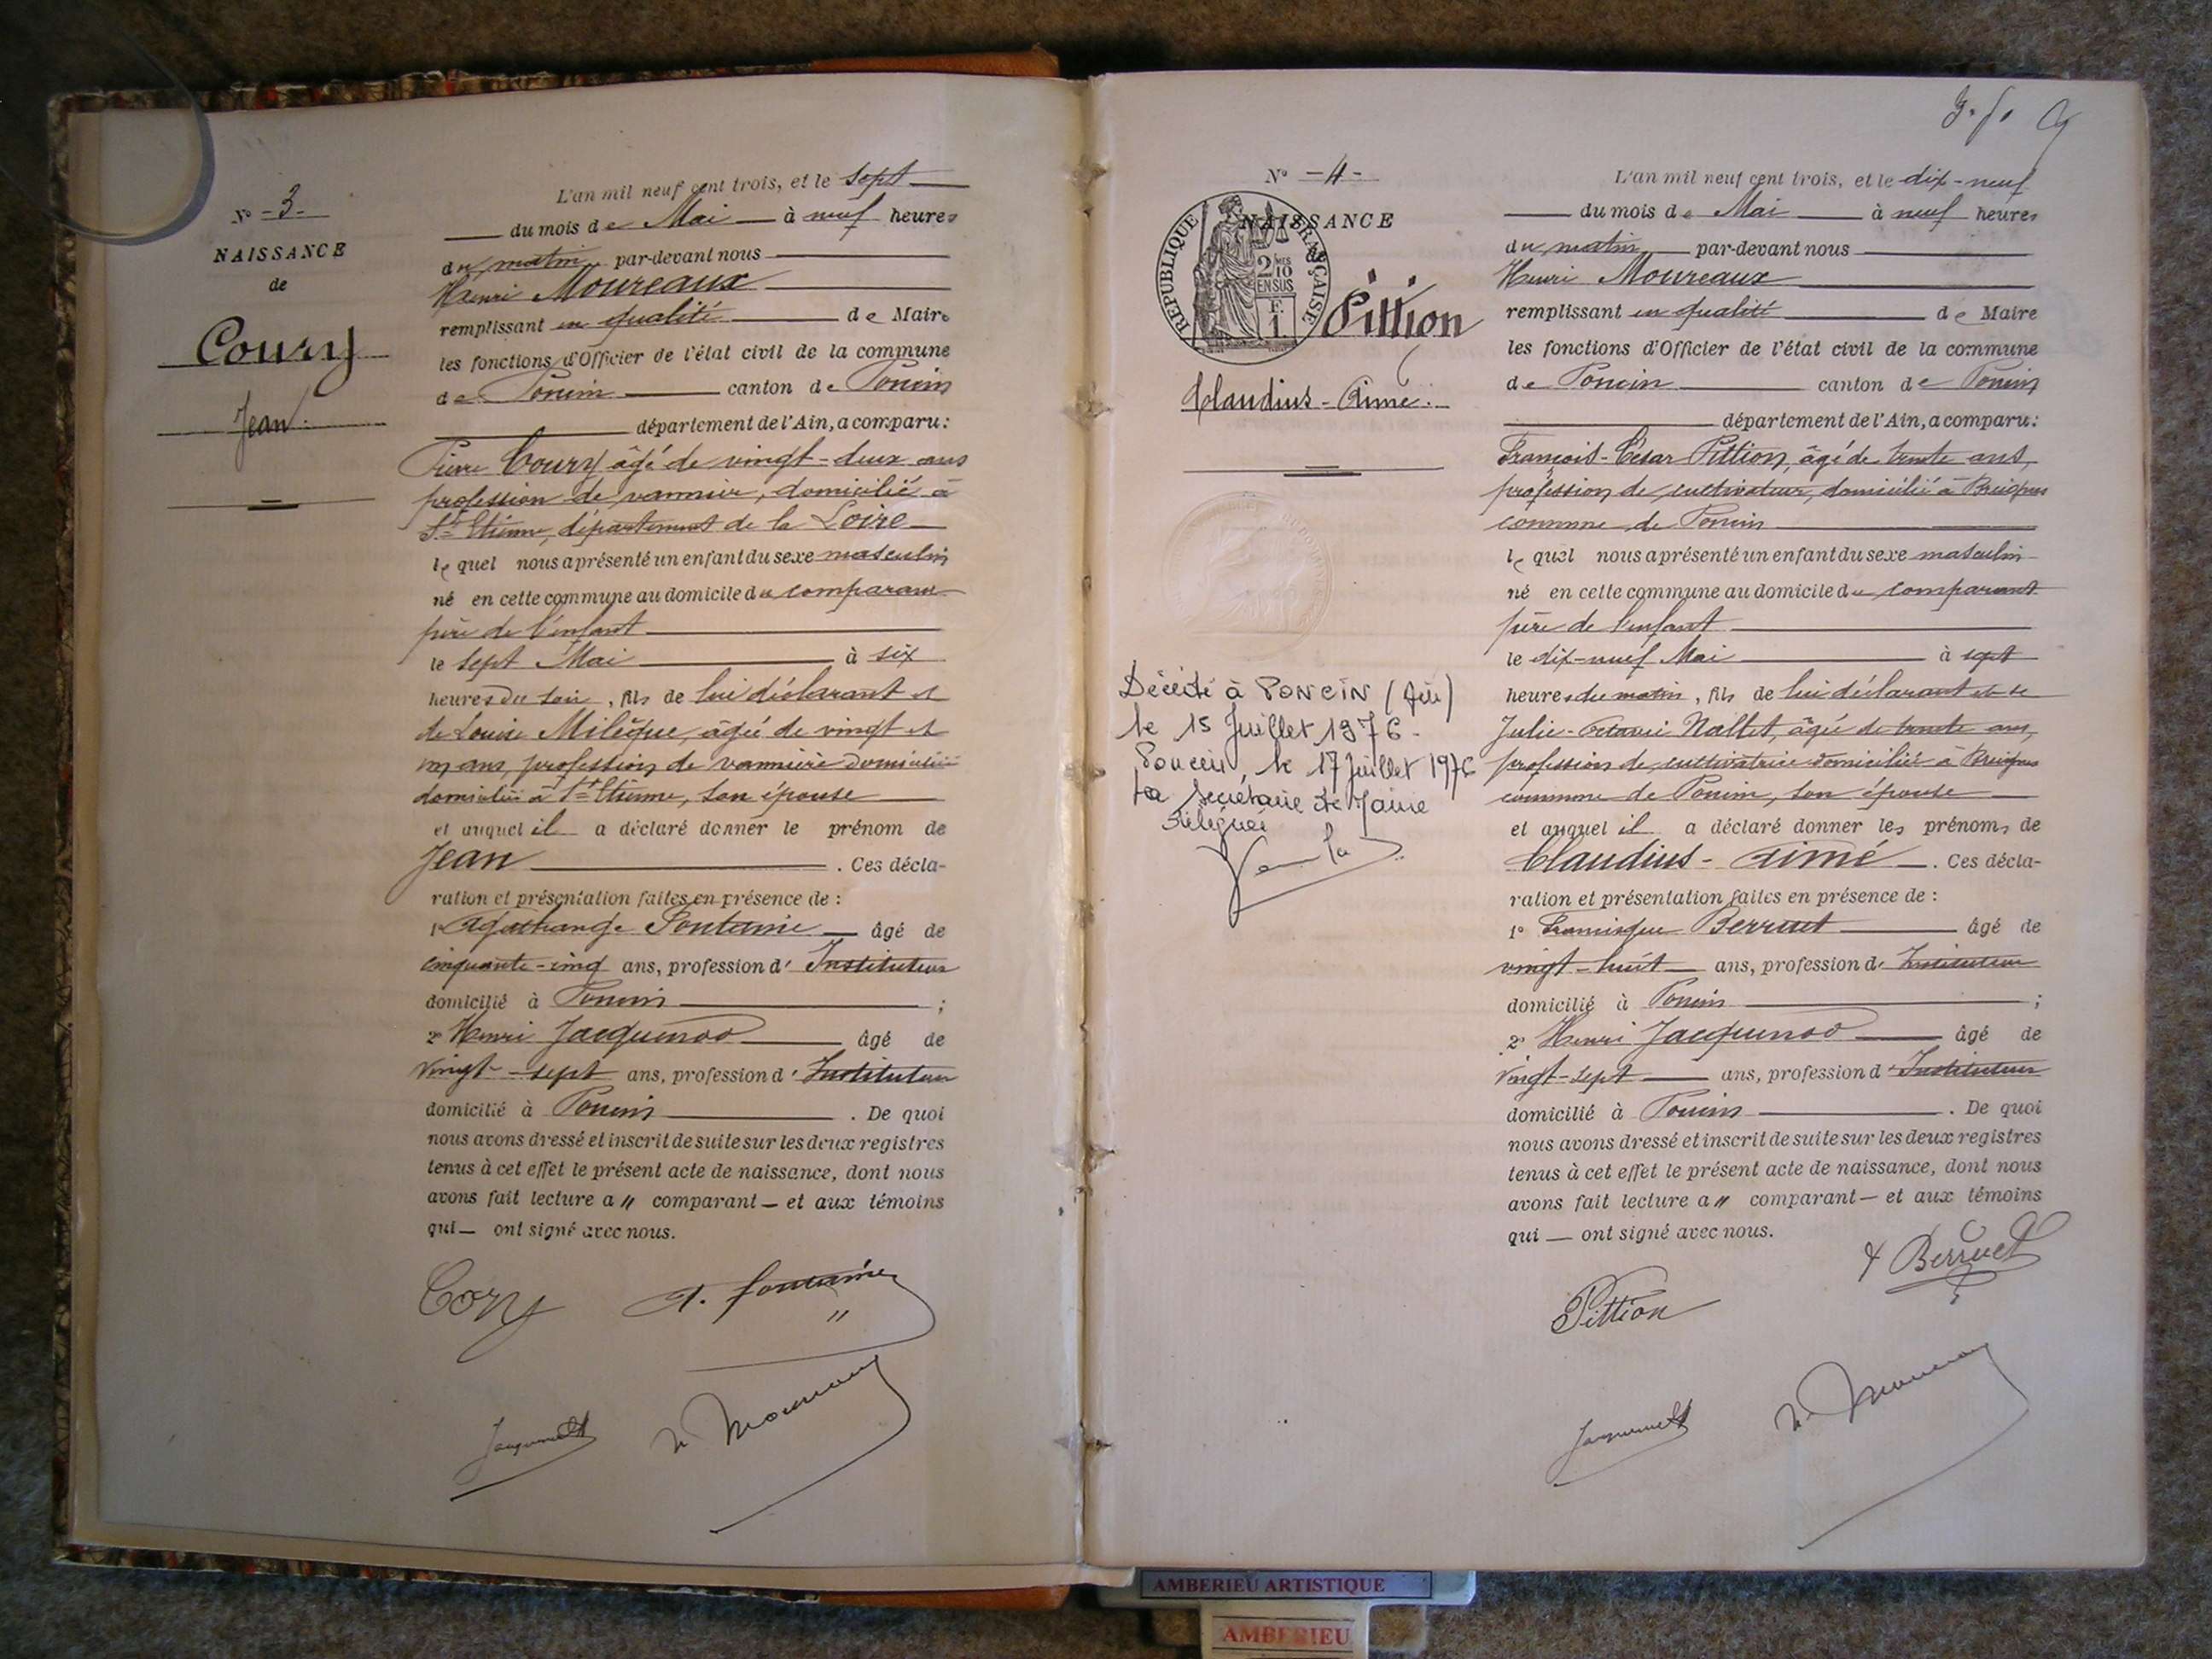 N° - 3 -
NAISSANCE
de
Coury
Jean
L'an mil neuf cent trois, et le sept
du mois de Mai à neuf heures
du matin par-devant nous
Henri Moureaux
remplissant en qualité de Maire
les fonctions d'Officier de l'état civil de la commune
de Poncin canton de Poncin
département de l'Ain, a comparu :
Pierre Coury âgé de vingt-deux ans
profession de vannier, domicilié à
St Etienne, département de la Loire
lequel nous a présenté un enfant du sexe masculin
né en cette commune au domicile du comparant
père de l'enfant
le sept Mai à six
heures du soir, fils de lui déclarant et
de Louise Milèque, âgée de vingt et
un ans, profession de vannière domiciliée
domiciliée à St Etienne, son épouse
et auquel il a déclaré donner le prénom de
Jean. Ces décla-
ration et présentation faites en présence de :
1° Agathange Fontaine âgé de
cinquante-cinq ans, profession d'Instituteur
domicilié à Poncin ;
2° Henri Jacquinod âgé de
vingt-sept ans, profession d'Instituteur
domicilié à Poncin. De quoi
nous avons dressé et inscrit de suite sur les deux registres
tenus à cet effet le présent acte de naissance, dont nous
avons fait lecture a " comparant — et aux témoins
qui — ont signé avec nous.
Cory A. Fontaine
H. Moureaux
N° - 4 -
NAISSANCE
REPUBLIQUE FRANÇAISE
2 MES
10
EN SUS
F.
1
Pittion
Claudius-Aimé.
Décédé à PONCIN (Ain)
le 15 Juillet 1976 -
Poncin, le 17 Juillet 1976
La Secrétaire de Mairie
Déléguée
L'an mil neuf cent trois, et le dix-neuf
du mois de Mai à neuf heures
du matin par-devant nous
Henri Moureaux
remplissant en qualité de Maire
les fonctions d'Officier de l'état civil de la commune
de Poncin canton de Poncin
département de l'Ain, a comparu :
François-César Pittion, âgé de trente ans,
profession de cultivateur, domicilié à
commune de Poncin
lequel nous a présenté un enfant du sexe masculin
né en cette commune au domicile du comparant
père de l'enfant
le dix-neuf Mai à sept
heures du matin, fils de lui déclarant et de
Julie-Octavie Nallet, âgée de trente ans,
profession de cultivatrice domiciliée à
commune de Poncin, son épouse
et auquel il a déclaré donner les prénoms de
Claudius-Aimé. Ces décla-
ration et présentation faites en présence de :
1° Francisque Berruet âgé de
vingt-huit ans, profession d'Instituteur
domicilié à Poncin ;
2° Henri Jacquinod âgé de
vingt-sept ans, profession d'Instituteur
domicilié à Poncin. De quoi
nous avons dressé et inscrit de suite sur les deux registres
tenus à cet effet le présent acte de naissance, dont nous
avons fait lecture a " comparant — et aux témoins
qui — ont signé avec nous.
Berruet
Pittion
H. Moureaux
AMBERIEU ARTISTIQUE
AMBERIEU